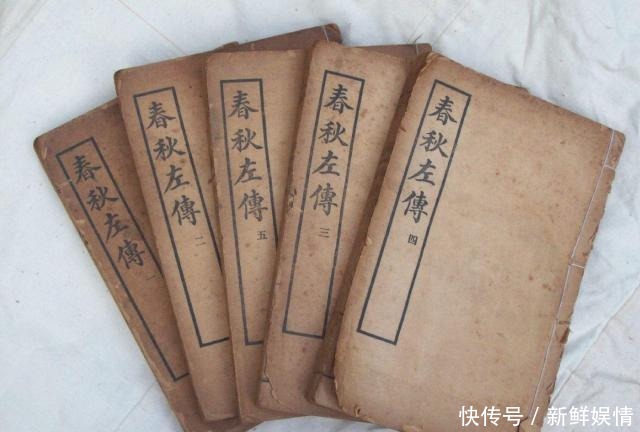 春秋左傳 一
春秋左傳 二
春秋左傳 五
春秋左傳 三
春秋左傳 四
快传号 / 新鲜娱情